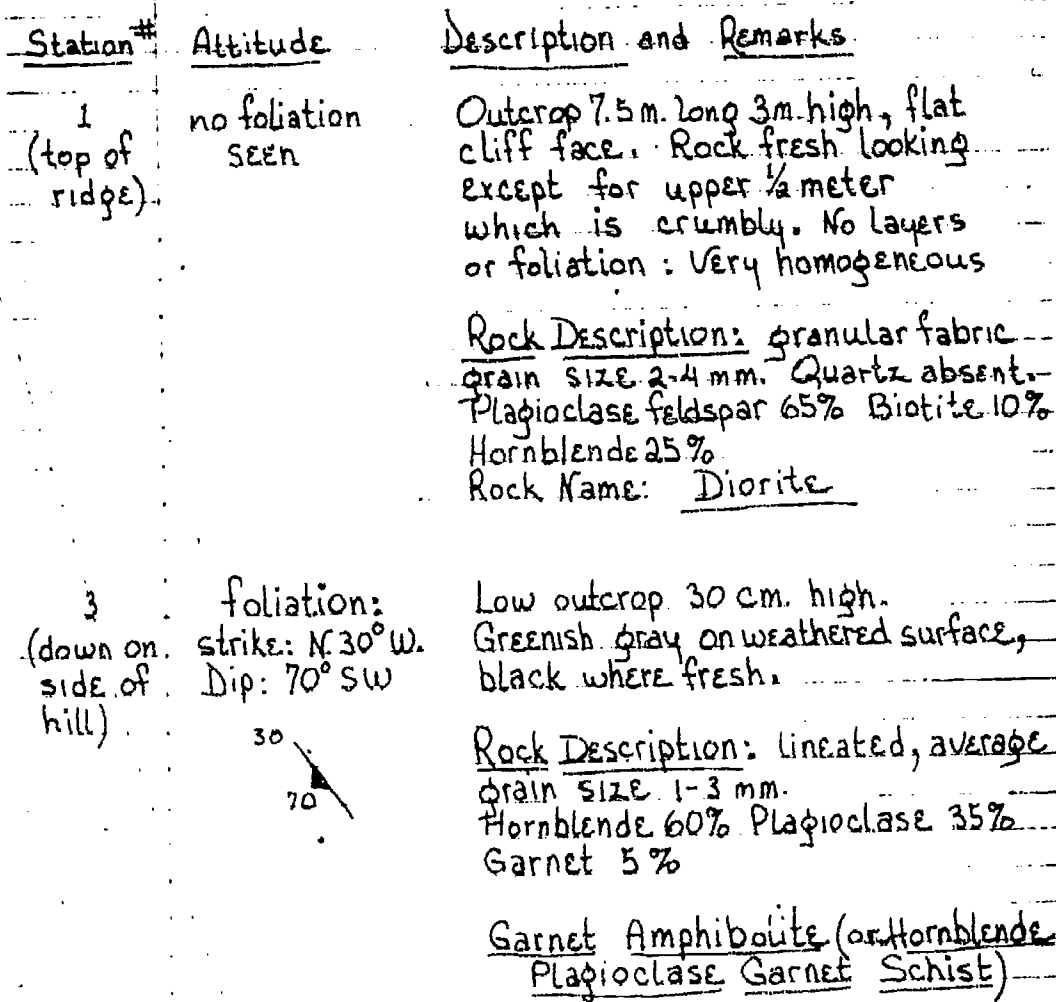 Station # Attitude Description and Remarks
1 no foliation Outcrop 7.5 m. long 3m. high, flat
(top of seen cliff face. Rock fresh looking
ridge) except for upper ½ meter
which is crumbly. No layers
or foliation : Very homogeneous
Rock Description: granular fabric
grain size 2-4 mm. Quartz absent.
Plagioclase feldspar 65% Biotite 10%
Hornblende 25%
Rock Name: Diorite
3 foliation: Low outcrop 30 cm. high.
(down on strike: N.30° W. Greenish gray on weathered surface,
side of Dip: 70° SW black where fresh.
hill)
30 Rock Description: lineated, average
70 grain size 1-3 mm.
Hornblende 60% Plagioclase 35%
Garnet 5%
Garnet Amphibolite (or Hornblende
Plagioclase Garnet Schist)